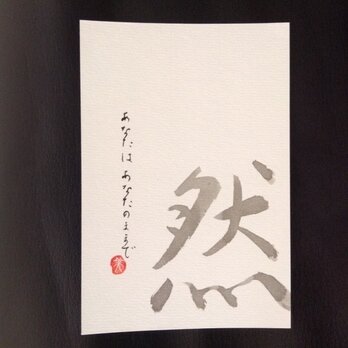 然
あなたは あなたのままで